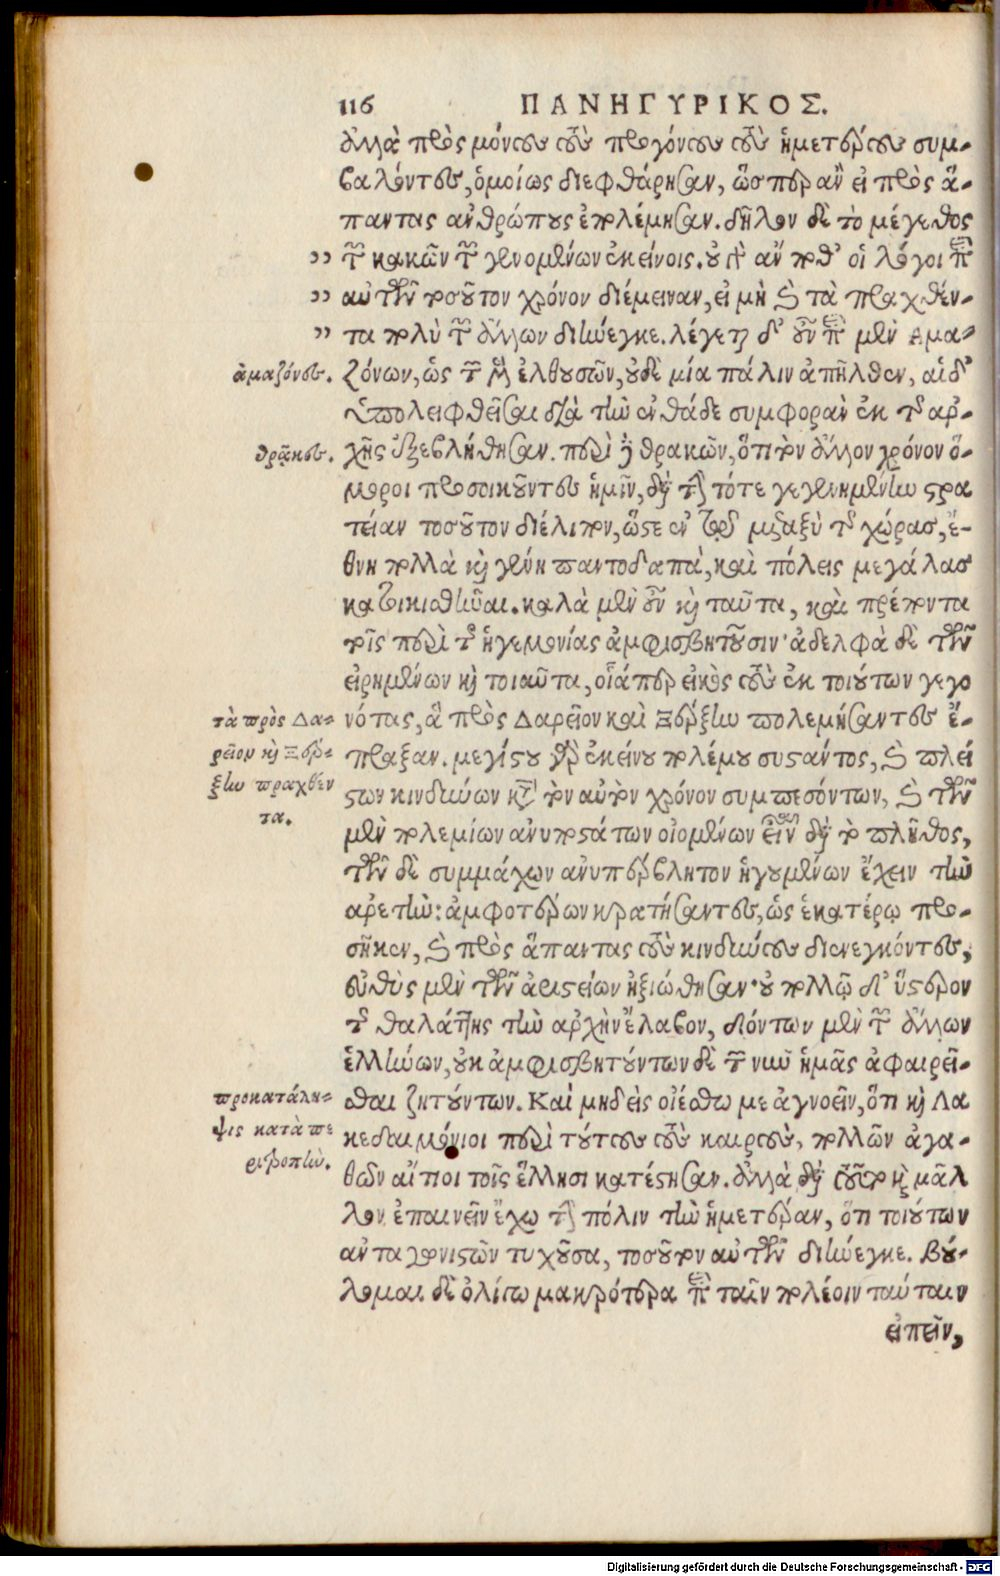 116 ΠΑΝΗΓΥΡΙΚΟΣ.
ἀλλὰ πρὸς μόνους τοὺς προγόνους τοὺς ἡμετέρους συμ-
βαλόντες, ὁμοίως διεφθάρησαν, ὥσπερ ἂν εἰ πρὸς ἅ-
παντας ἀνθρώπους ἐπολέμησαν. δῆλον δὲ τὸ μέγεθος
" τῶν κακῶν τῶν γενομένων ἐκείνοις. οὐ γὰρ ἄν ποθ' οἱ λόγοι περὶ
" αὐτῶν τοσοῦτον χρόνον διέμειναν, εἰ μὴ καὶ τὰ πραχθέν-
" τα πολὺ τῶν ἄλλων διήνεγκε. λέγεται δ' οὖν περὶ μὲν Ἀμα-
ἀμαζόνες. ζόνων, ὡς τῶν μὲν ἐλθουσῶν, οὐδὲ μία πάλιν ἀπῆλθεν, αἱ δ'
ὑπολειφθεῖσαι διὰ τὴν ἐνθάδε συμφορὰν ἐκ τῆς ἀρ-
θρᾷκες. χῆς ἐξεβλήθησαν. περὶ δὲ θρακῶν, ὅτι τὸν ἄλλον χρόνον ὅ-
μοροι προσοικοῦντες ἡμῖν, διὰ τὴν τότε γεγενημένην στρα
τείαν τοσοῦτον διέλιπον, ὥστε ἐν τῷ μεταξὺ τῆς χώρας, ἔ-
θνη πολλὰ καὶ γένη παντοδαπὰ, καὶ πόλεις μεγάλας
κατοικισθῆναι. καλὰ μὲν οὖν καὶ ταῦτα, καὶ πρέποντα
τοῖς περὶ τῆς ἡγεμονίας ἀμφισβητοῦσιν· ἀδελφὰ δὲ τῶν
εἰρημένων καὶ τοιαῦτα, οἷάπερ εἰκὸς τοὺς ἐκ τοιούτων γεγο
τὰ πρὸς Δα- νότας, ἃ πρὸς Δαρεῖον καὶ Ξέρξην πολεμήσαντες ἔ-
ρεῖον καὶ Ξέρ- πραξαν. μεγίστου γὰρ ἐκείνου πολέμου συστάντος, καὶ πλεί
ξην πραχθέν στων κινδύνων κατὰ τὸν αὐτὸν χρόνον συμπεσόντων, καὶ τῶν
τα. μὲν πολεμίων ἀνυποστάτων οἰομένων εἶναι διὰ τὸ πλῆθος,
τῶν δὲ συμμάχων ἀνυπέρβλητον ἡγουμένων ἔχειν τὴν
ἀρετήν: ἀμφοτέρων κρατήσαντες, ὡς ἑκατέρῳ προ-
σῆκεν, καὶ πρὸς ἅπαντας τοὺς κινδύνους διενεγκόντες,
εὐθὺς μὲν τῶν ἀριστείων ἠξιώθησαν· οὐ πολλῷ δ' ὕστερον
τῆς θαλάττης τὴν ἀρχὴν ἔλαβον, διδόντων μὲν τῶν ἄλλων
ἑλλήνων, οὐκ ἀμφισβητούντων δὲ τῶν νῦν ἡμᾶς ἀφαιρεῖ-
προκατάλη- σθαι ζητούντων. Καὶ μηδεὶς οἰέσθω με ἀγνοεῖν, ὅτι καὶ Λα
ψις κατὰ πε κεδαιμόνιοι περὶ τούτους τοὺς καιροὺς, πολλῶν ἀγα-
ριτροπήν. θῶν αἴτιοι τοῖς ἕλλησι κατέστησαν. ἀλλὰ διὰ τοῦτο καὶ μᾶλ
λον ἐπαινεῖν ἔχω τὴν πόλιν τὴν ἡμετέραν, ὅτι τοιούτων
ἀνταγωνιστῶν τυχοῦσα, τοσοῦτον αὐτῶν διήνεγκε. Βού-
λομαι δὲ ὀλίγῳ μακρότερα περὶ ταῖν πολέοιν ταύταιν
εἰπεῖν,
Digitalisierung gefördert durch die Deutsche Forschungsgemeinschaft - DFG